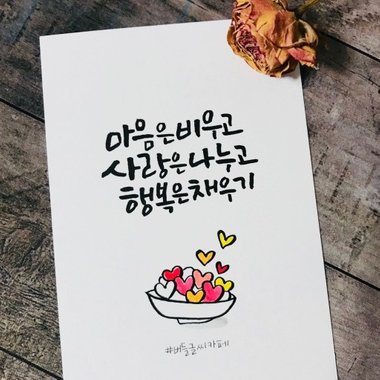 마음은비우고
사랑은나누고
행복은채우기
#버들글씨카페